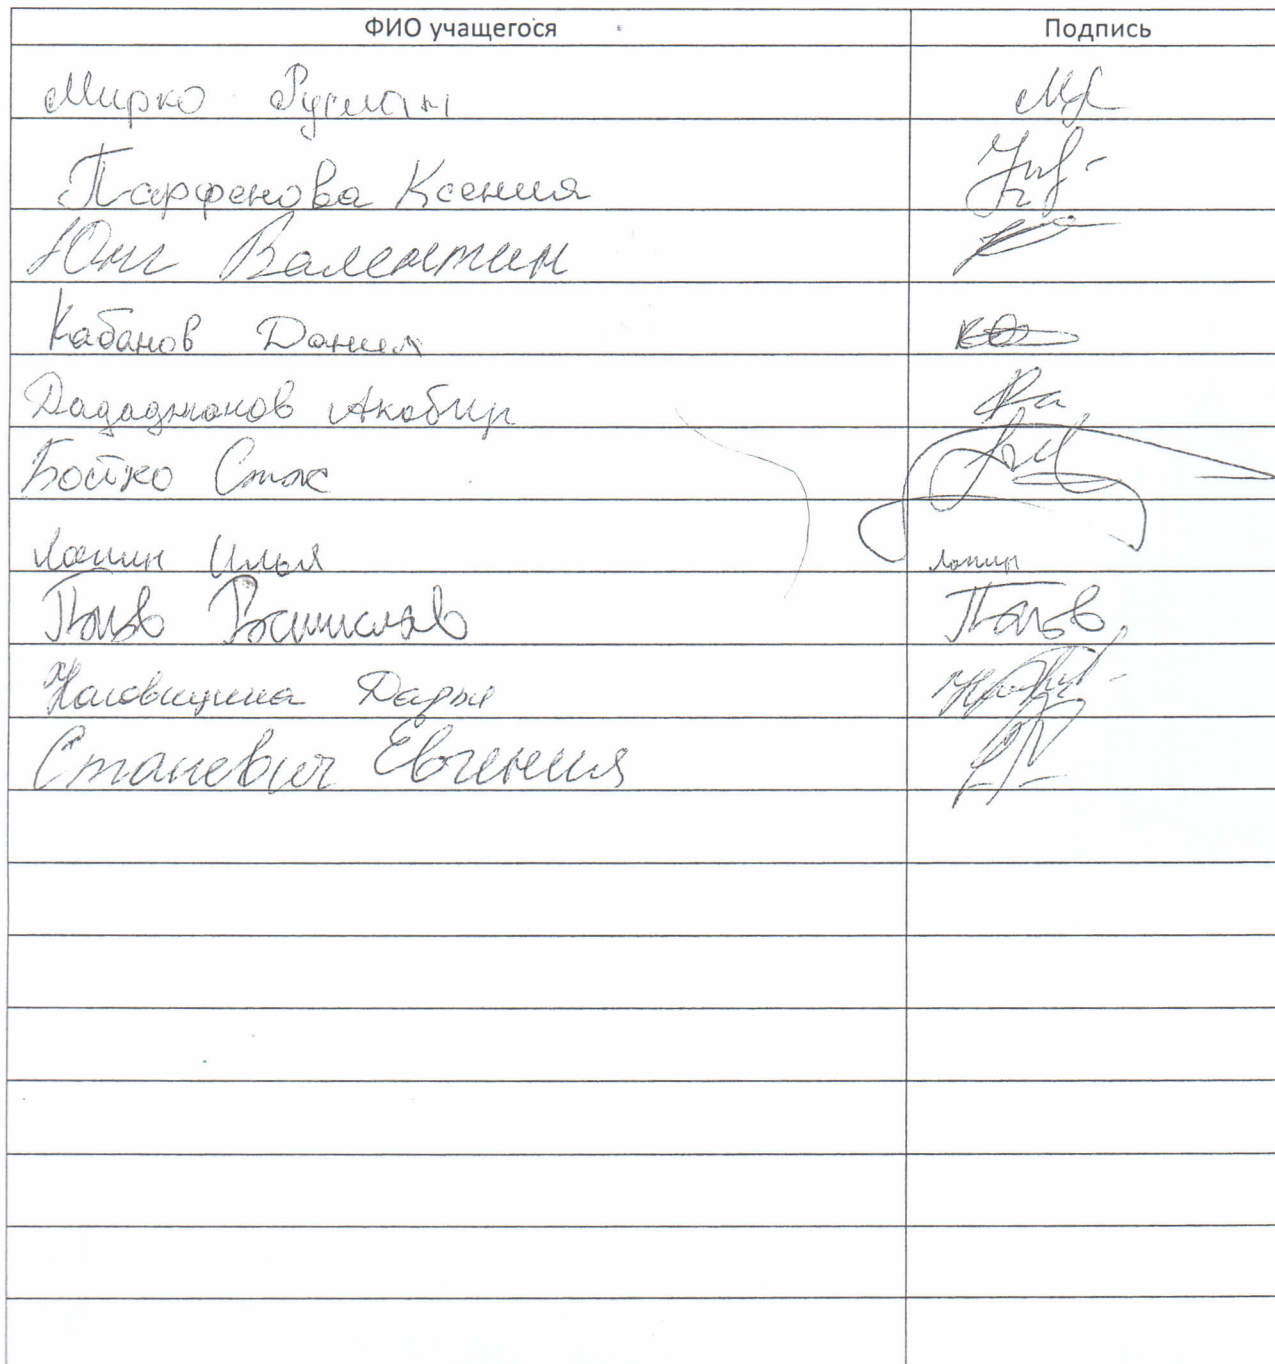 ФИО учащегося Подпись
Мирко Руслан
Парфенова Ксения
Юнг Валентин
Кабанов Даниил
Дададжанов Акобир
Бойко Стас
Лапин Илья Лапин
Дарья
Станевич Евгения